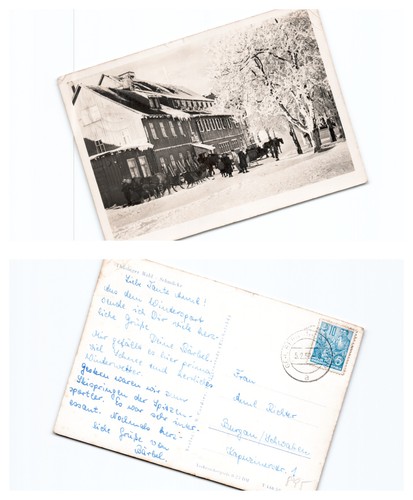 Liebe Tante Anni!
Aus dem Wintersport
sende ich Dir viele herz-
liche Grüße
Deine Bärbel.
Mir gefällts es hier prima,
viel Schnee und herrliches
Winterwetter.
Gestern waren wir zum
Skispringen der Spitzen-
sportler. Es war sehr inter-
essant. Nochmals herz-
liche Grüße von
Bärbel
Frau
Anni Richter
Burgau/Schwaben
Kapuzinerstr. 1